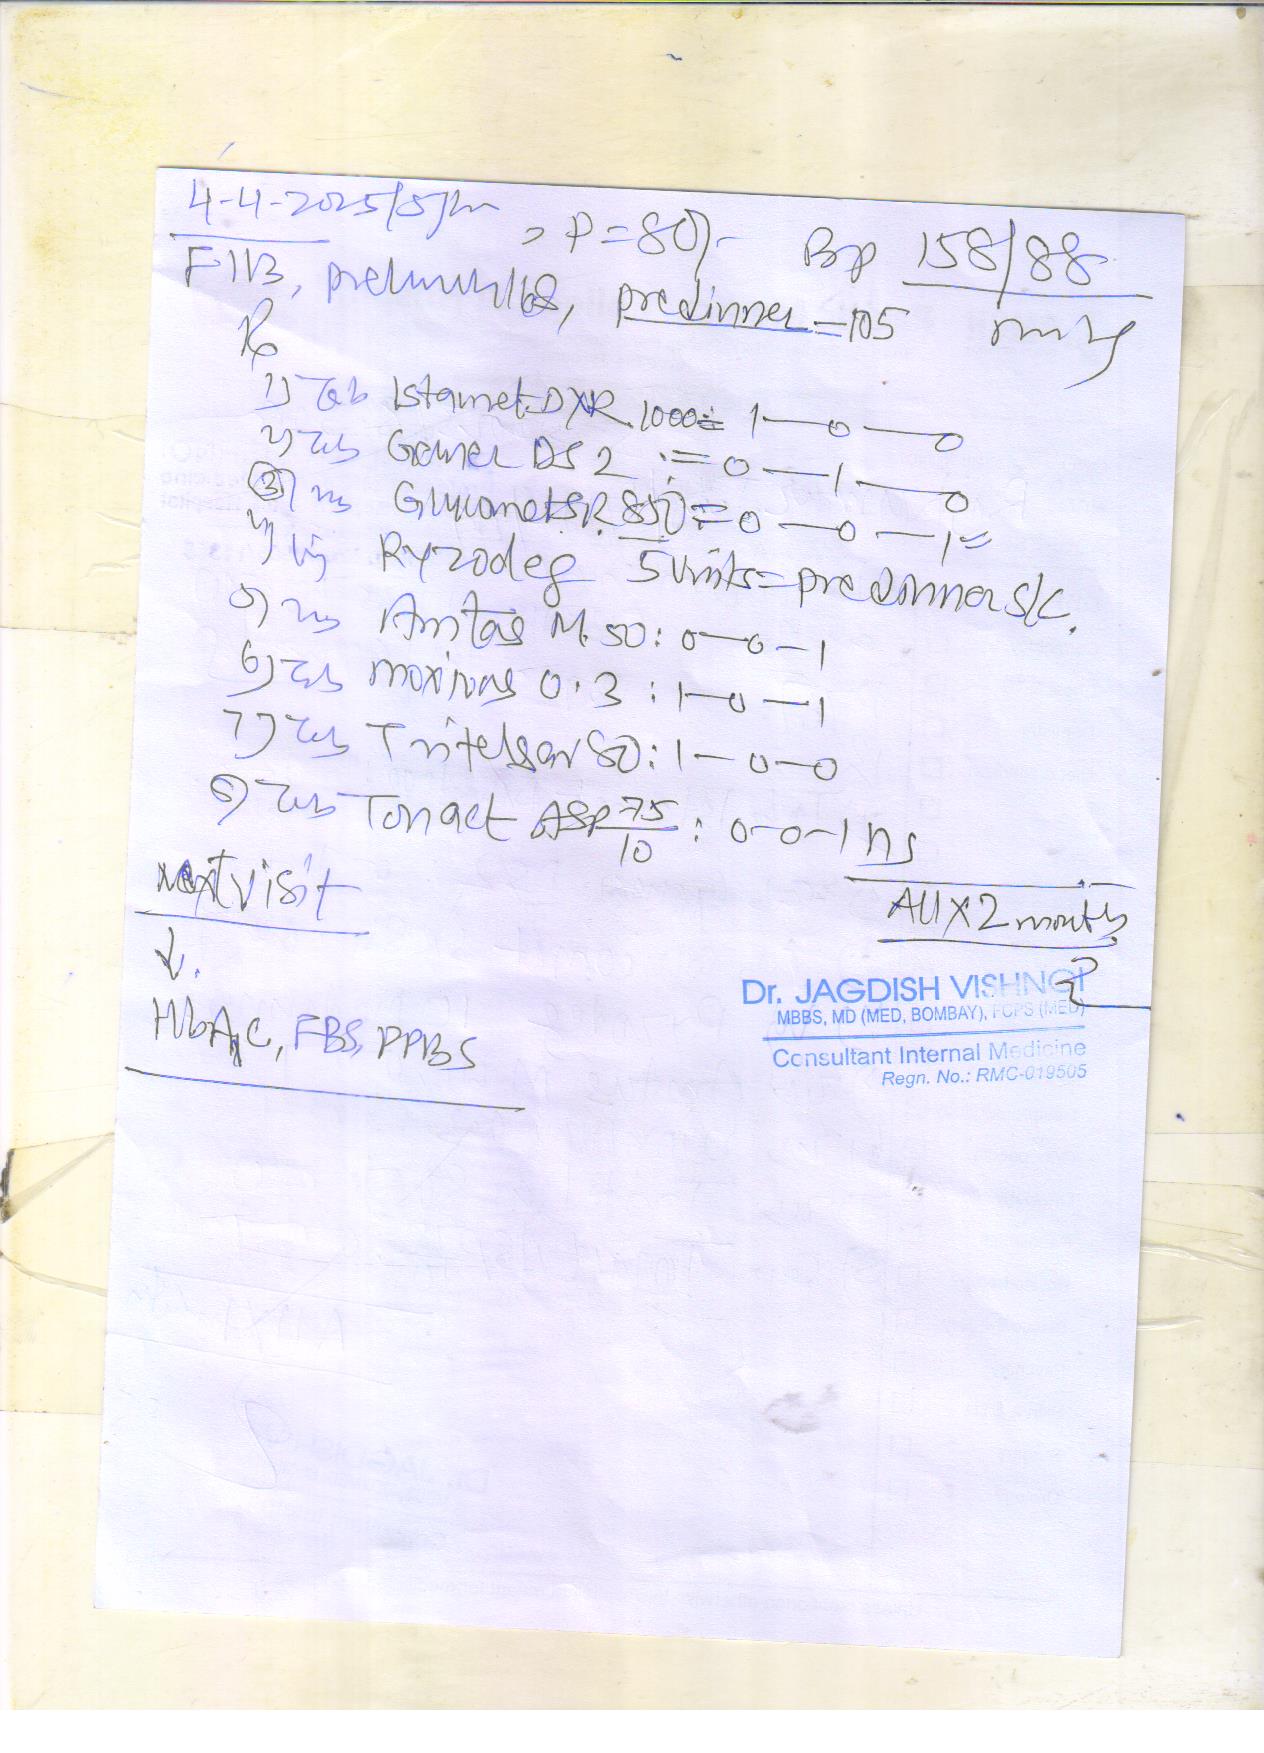 4-4-2025/5pm
P=80/- BP 158/88
F113, prelunch 168, predinner=105 mmHg
Rx
1) Tab Istamet DXR 1000 = 1—0—0
2) Tab Gemer DS 2 := 0—1—0
3) Tab Glycomet SR 850 = 0—0—1=
4) Inj Ryzodeg 5 Units = predinner S/C.
5) Tab Amtas M. 50: 0—0—1
6) Tab 0.3 : 1—0—1
7) Tab Tritelsar 80: 1—0—0
8) Tab Tonact ASP 75/10 : 0-0-1 ns
Next visit
All X 2 months
↓.
HbA1C, FBS, PPBS
Dr. JAGDISH VISHNOI
MBBS, MD (MED, BOMBAY), FCPS (MED)
Consultant Internal Medicine
Regn. No.: RMC-019505